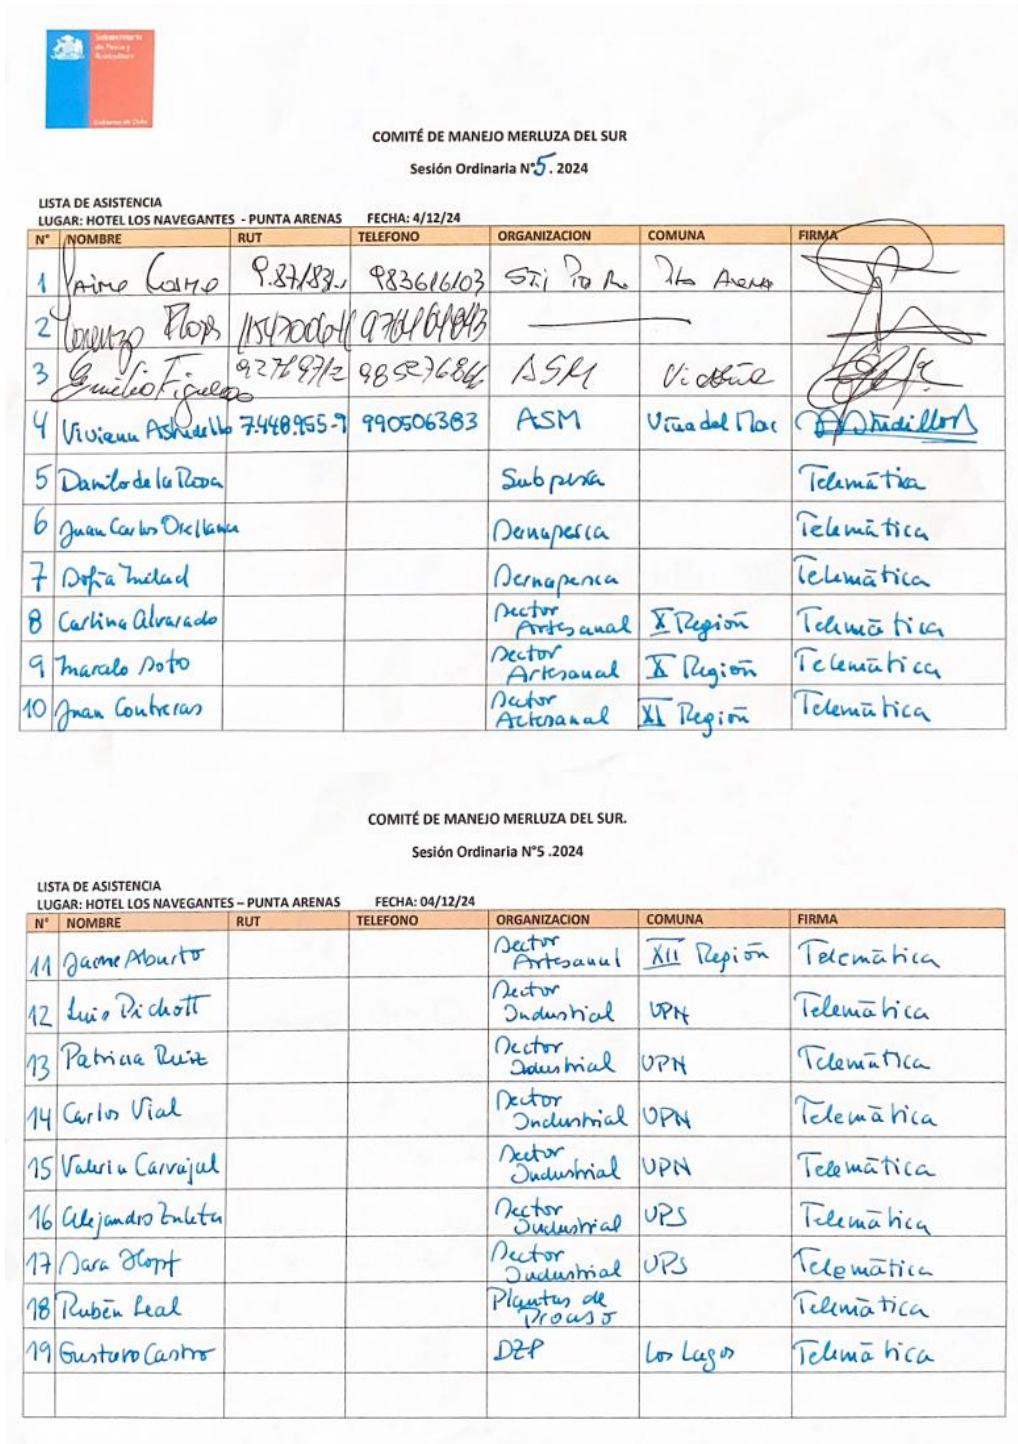 Subsecretaría
de Pesca y
Acuicultura
Gobierno de Chile
COMITÉ DE MANEJO MERLUZA DEL SUR
Sesión Ordinaria N°5. 2024
LISTA DE ASISTENCIA
LUGAR: HOTEL LOS NAVEGANTES - PUNTA ARENAS FECHA: 4/12/24
N° NOMBRE RUT TELEFONO ORGANIZACION COMUNA FIRMA
1 Jaime Cosme 983616103 Pta Arenas
2 Lorenzo
3 Emilio Figueroa ASM
4 Viviana 7.448.955-9 990506383 ASM Viña del Mar
5 Danilo de la Rosa Subpesca Telemática
6 Juan Carlos Orellana Sernapesca Telemática
7 Sofía Milad Sernapesca Telemática
8 Carlina Alvarado Sector Artesanal X Región Telemática
9 Marcelo Soto Sector Artesanal X Región Telemática
10 Juan Contreras Sector Artesanal XI Región Telemática
COMITÉ DE MANEJO MERLUZA DEL SUR.
Sesión Ordinaria N°5 .2024
LISTA DE ASISTENCIA
LUGAR: HOTEL LOS NAVEGANTES – PUNTA ARENAS FECHA: 04/12/24
N° NOMBRE RUT TELEFONO ORGANIZACION COMUNA FIRMA
11 Jaime Aburto Sector Artesanal XII Región Telemática
12 Luis Pichott Sector Industrial UPN Telemática
13 Patricia Ruiz Sector Industrial UPN Telemática
14 Carlos Vial Sector Industrial UPN Telemática
15 Valeria Carvajal Sector Industrial UPN Telemática
16 Alejandro Zuleta Sector Industrial UPS Telemática
17 Sara Hopf Sector Industrial UPS Telemática
18 Rubén Leal Plantas de Proceso Telemática
19 Gustavo Castro DZP Los Lagos Telemática